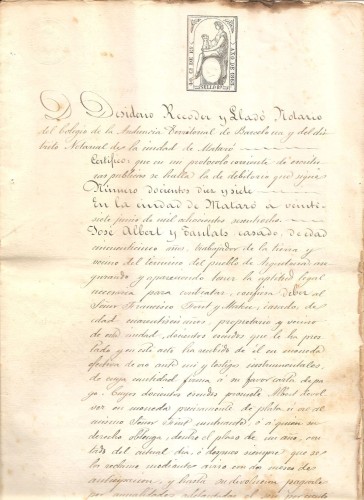 D. Desiderio Recoder y Lladó Notario
del Colegio de la Audiencia Territorial de Barcelona y del dis-
trito Notarial de la ciudad de Mataró
Certifico: que en mi protocolo corriente de escritu-
ras publicas se halla la de debitorio que sigue
Número docientos diez y siete
En la ciudad de Mataró a veinti-
siete junio de mil ochocientos sesentiocho.
José Albert y Taulats casado, de edad
cincuenticinco años, trabajador de la tierra y
vecino del termino del pueblo de Argentona: ase-
gurando y aparentando tener la aptitud legal
necesaria para contratar, confiesa deber al
Señor Francisco Font y casado, de
edad años, propietario y vecino
de esta ciudad, docientos escudos que le ha pres-
tado y en este acto ha recibido de él en moneda
efectiva de oro ante mi y testigos instrumentales,
de cuya cantidad firma á su favor carta de pa-
go. Cuyos docientos escudos promete Albert devol-
ver en moneda precisamente de plata ú oro al
mismo Señor Font á quien su
derecho obtenga, dentro el plazo de un año, con-
tado del actual dia, ó despues siempre que se
le reclame mediante aviso con dos meses de
anticipacion, y hasta su devolucion pagarle
por anualidades adelantadas